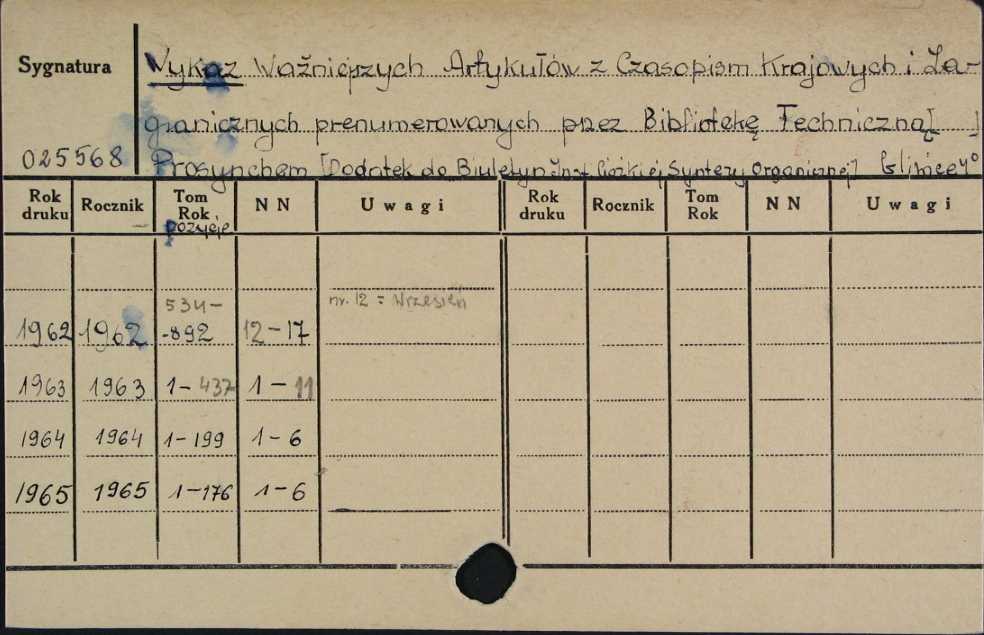 Sygnatura
Wykaz Ważniejszych Artykułów z Czasopism Krajowych i Za-
granicznych prenumerowanych przez Bibliotekę Techniczną[ ]
025568 Prosynchem [Dodatek do Biuletynu Inst. Ciężkiej Syntezy Organicznej] Gliwice
Rok druku Rocznik Tom Rok pozycje NN Uwagi Rok druku Rocznik Tom Rok NN Uwagi
534- nr. 12 = Wrzesień
1962 1962 -892 12-17
1963 1963 1-437 1-11
1964 1964 1-199 1-6
1965 1965 1-176 1-6